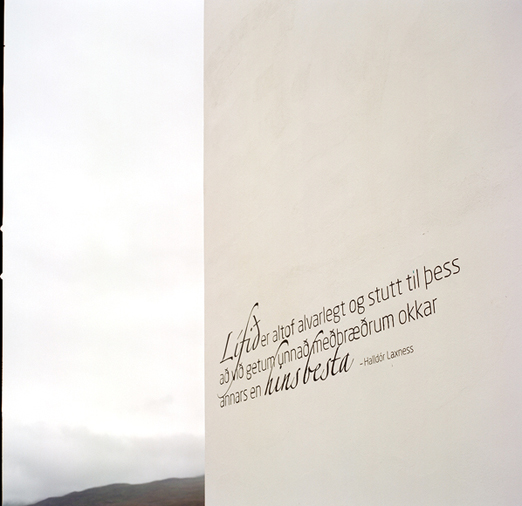 Lífið er altof alvarlegt og stutt til þess
að við getum unnað meðbræðrum okkar
annars en hins besta – Halldór Laxness